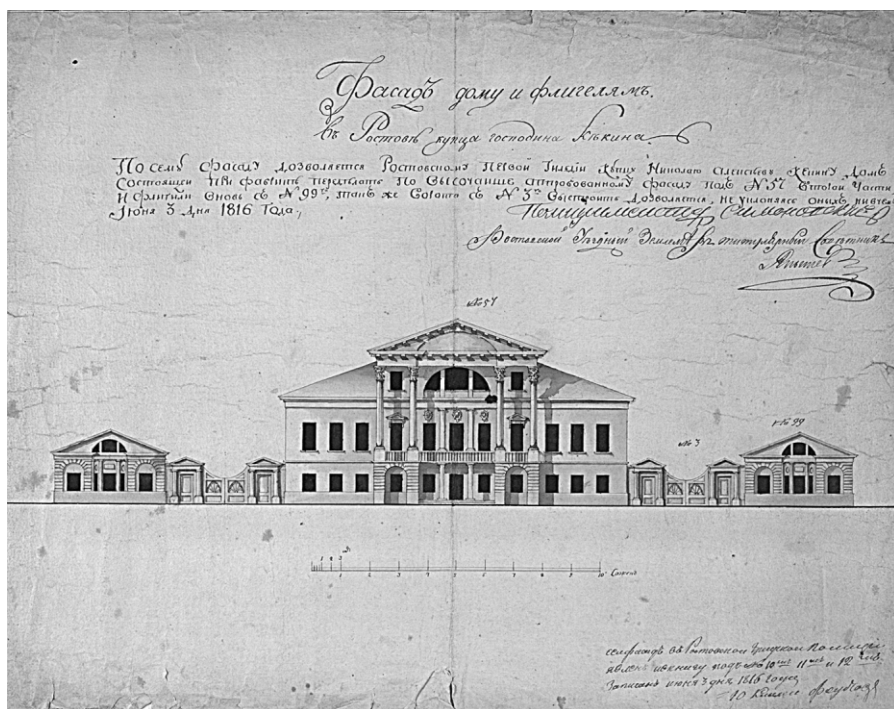 Фасадъ дому и флигелямъ.
въ Ростовѣ купца господина Кѣкина
По сему Фасаду дозволяется Ростовскому Первой Гильдіи купцу Николаю Алексѣеву Кекину Домъ
Состоящей При фабрикѣ По Высочайше аппробованному фасаду подъ №57 Второй Части
И флигили Вновь съ №99го, такъ же Ворота съ №3го Выстроить Дозволяется, не уклоняясь онымъ
Іюня 3 дня 1816 Года,
Полицимейстер Симоновский
Ростовской Уѣздный Землемѣръ титулярный Совѣтникъ
№57
№99
№3
1 2 3
1 2 3 4 5 6 7 8 9 10 Сажень
сей фасадъ въ Ростовской Градской Полиціи
явленъ и в книгу подъ 10мъ 11мъ и 12мъ
Записанъ июня 3 дня 1816 года